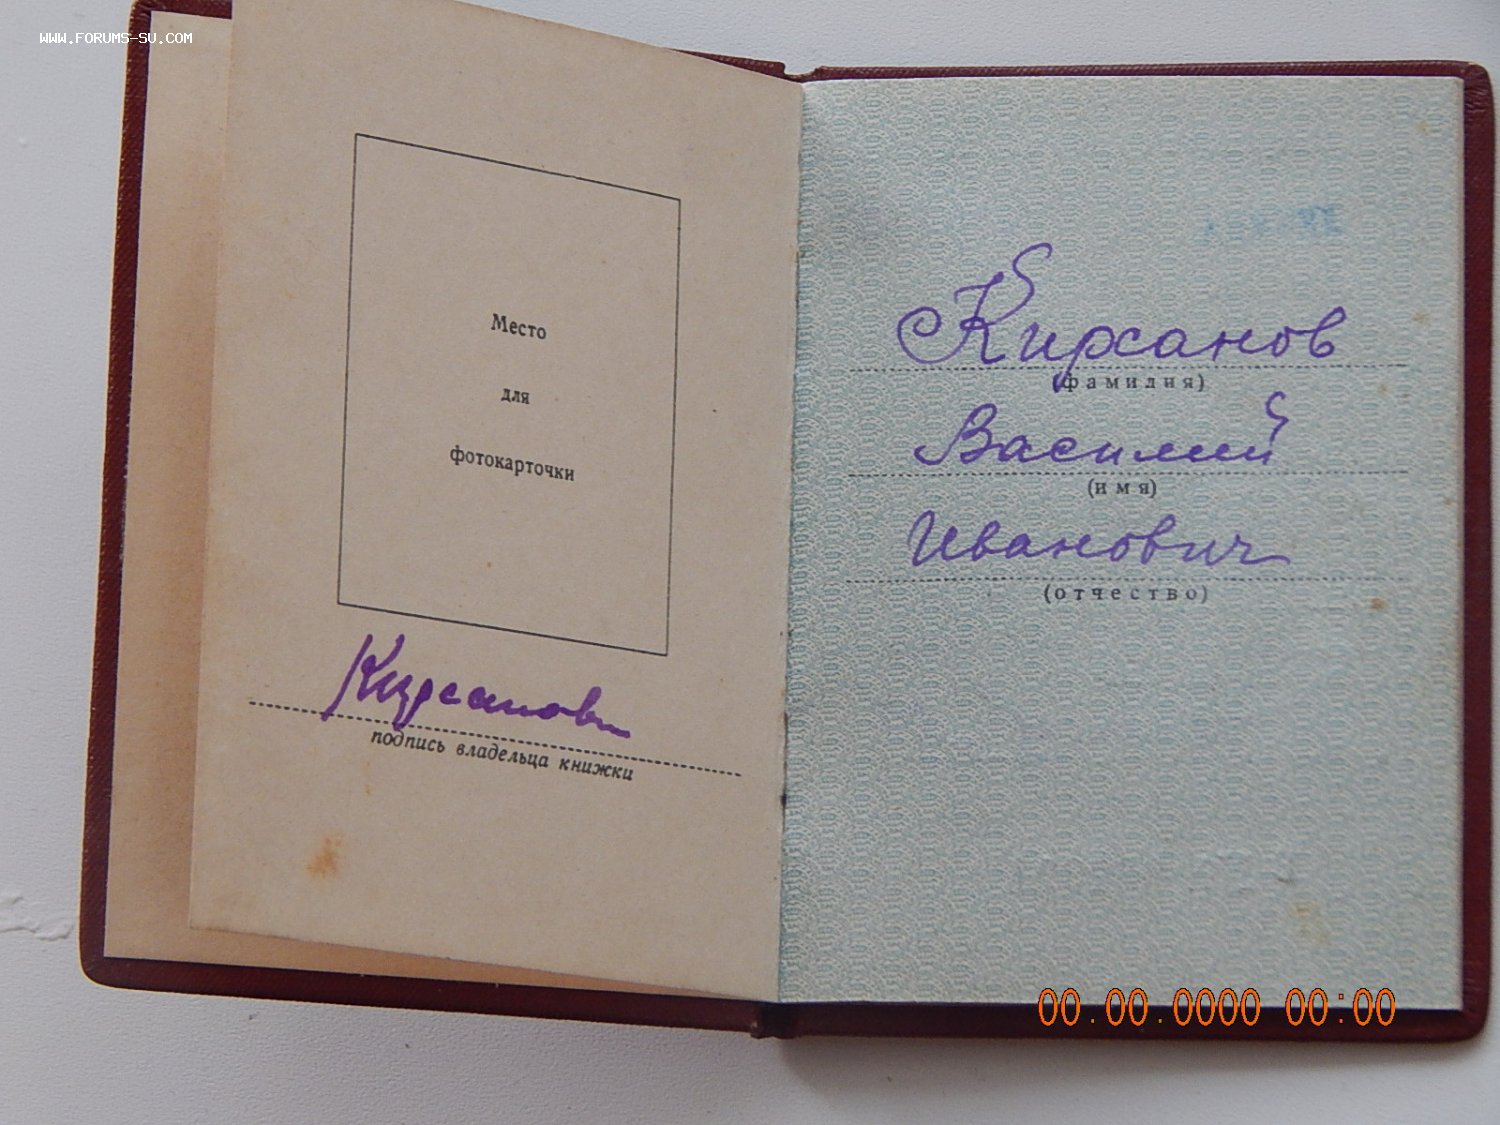 WWW.FORUMS-SU.COM
Место
для
фотокарточки
Кирсанов
подпись владельца книжки
Кирсанов
(фамилия)
Василий
(имя)
Иванович
(отчество)
00.00.0000 00:00